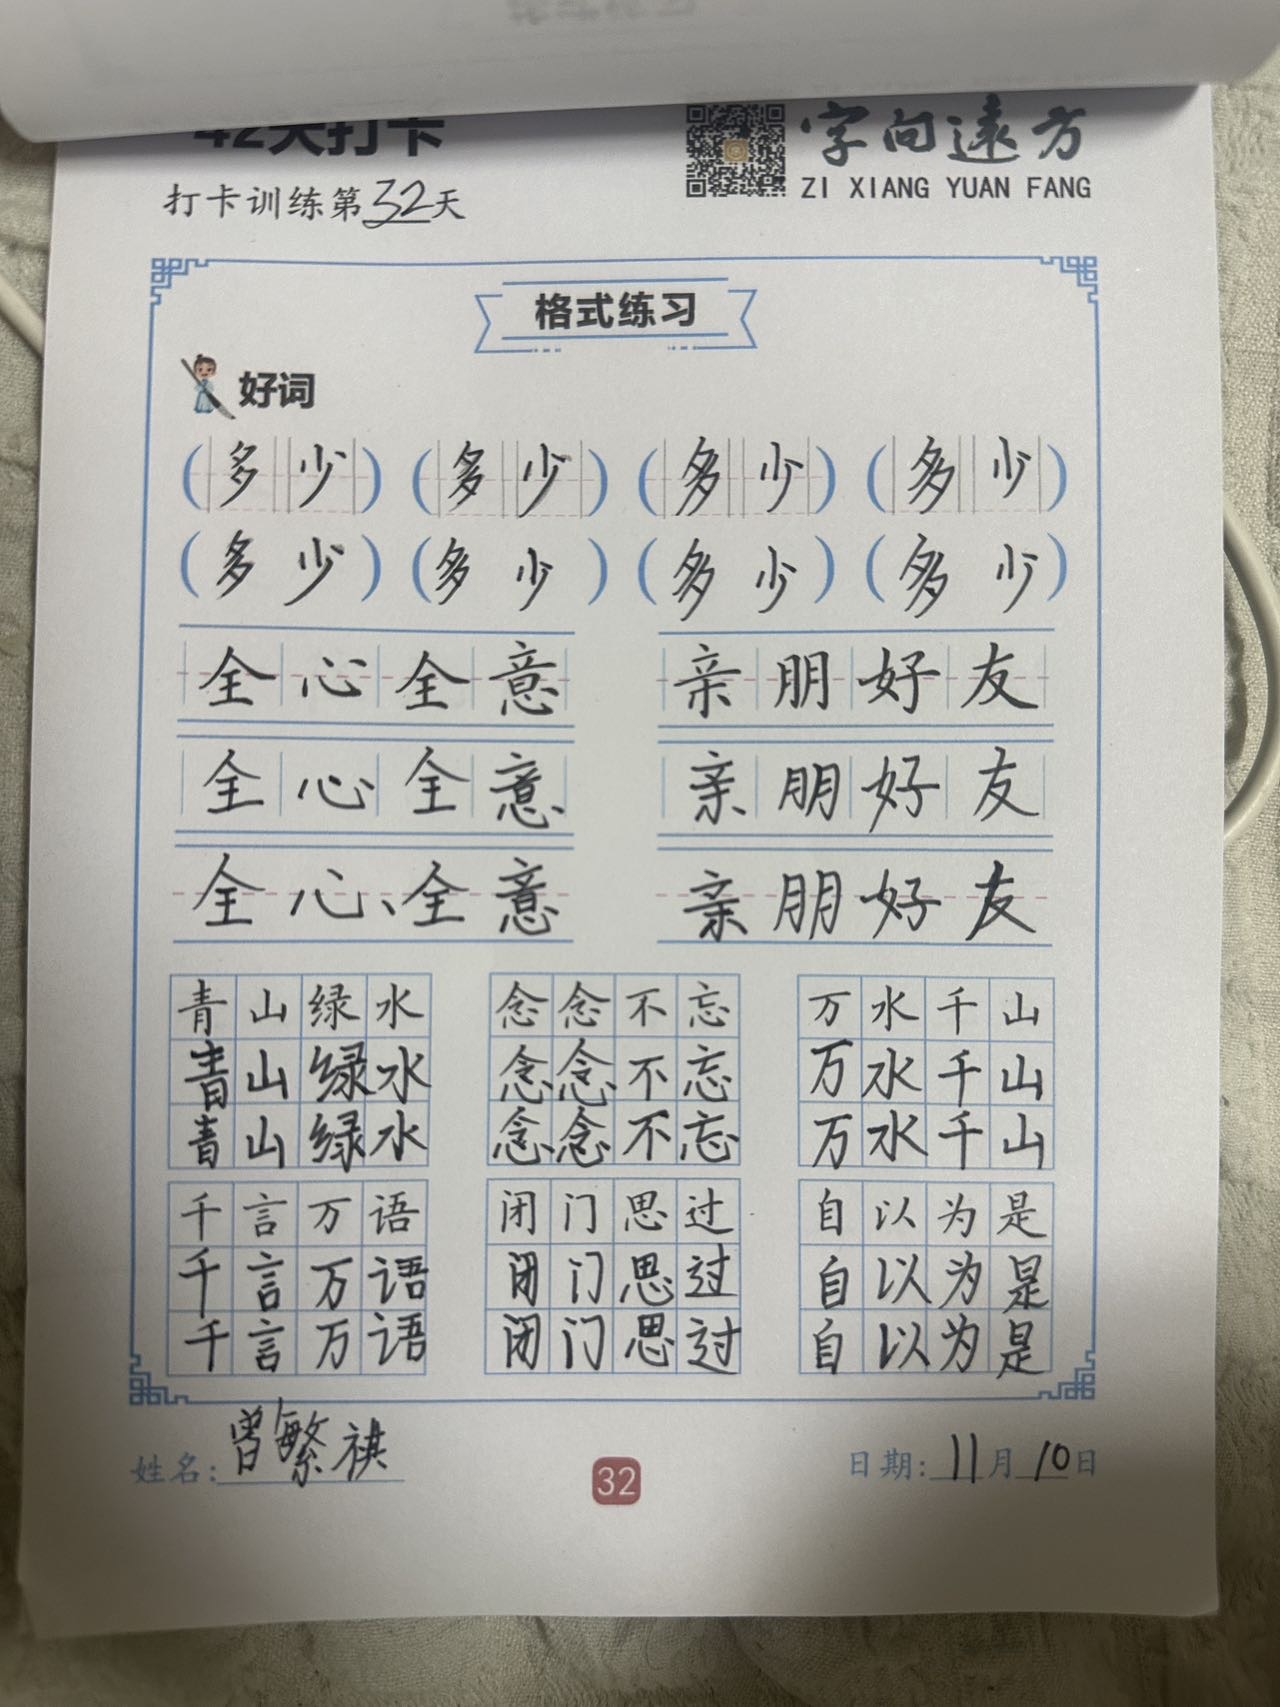 42天打卡
字向遠方
打卡训练第32天
ZI XIANG YUAN FANG
格式练习
好词
(多少) (多少) (多少) (多少)
(多少) (多少) (多少) (多少)
全心全意 亲朋好友
全心全意 亲朋好友
全心、全意 亲朋好友
青山绿水 念念不忘 万水千山
青山绿水 念念不忘 万水千山
青山绿水 念念不忘 万水千山
千言万语 闭门思过 自以为是
千言万语 闭门思过 自以为是
千言万语 闭门思过 自以为是
姓名:曾繁祺
32
日期:11月10日